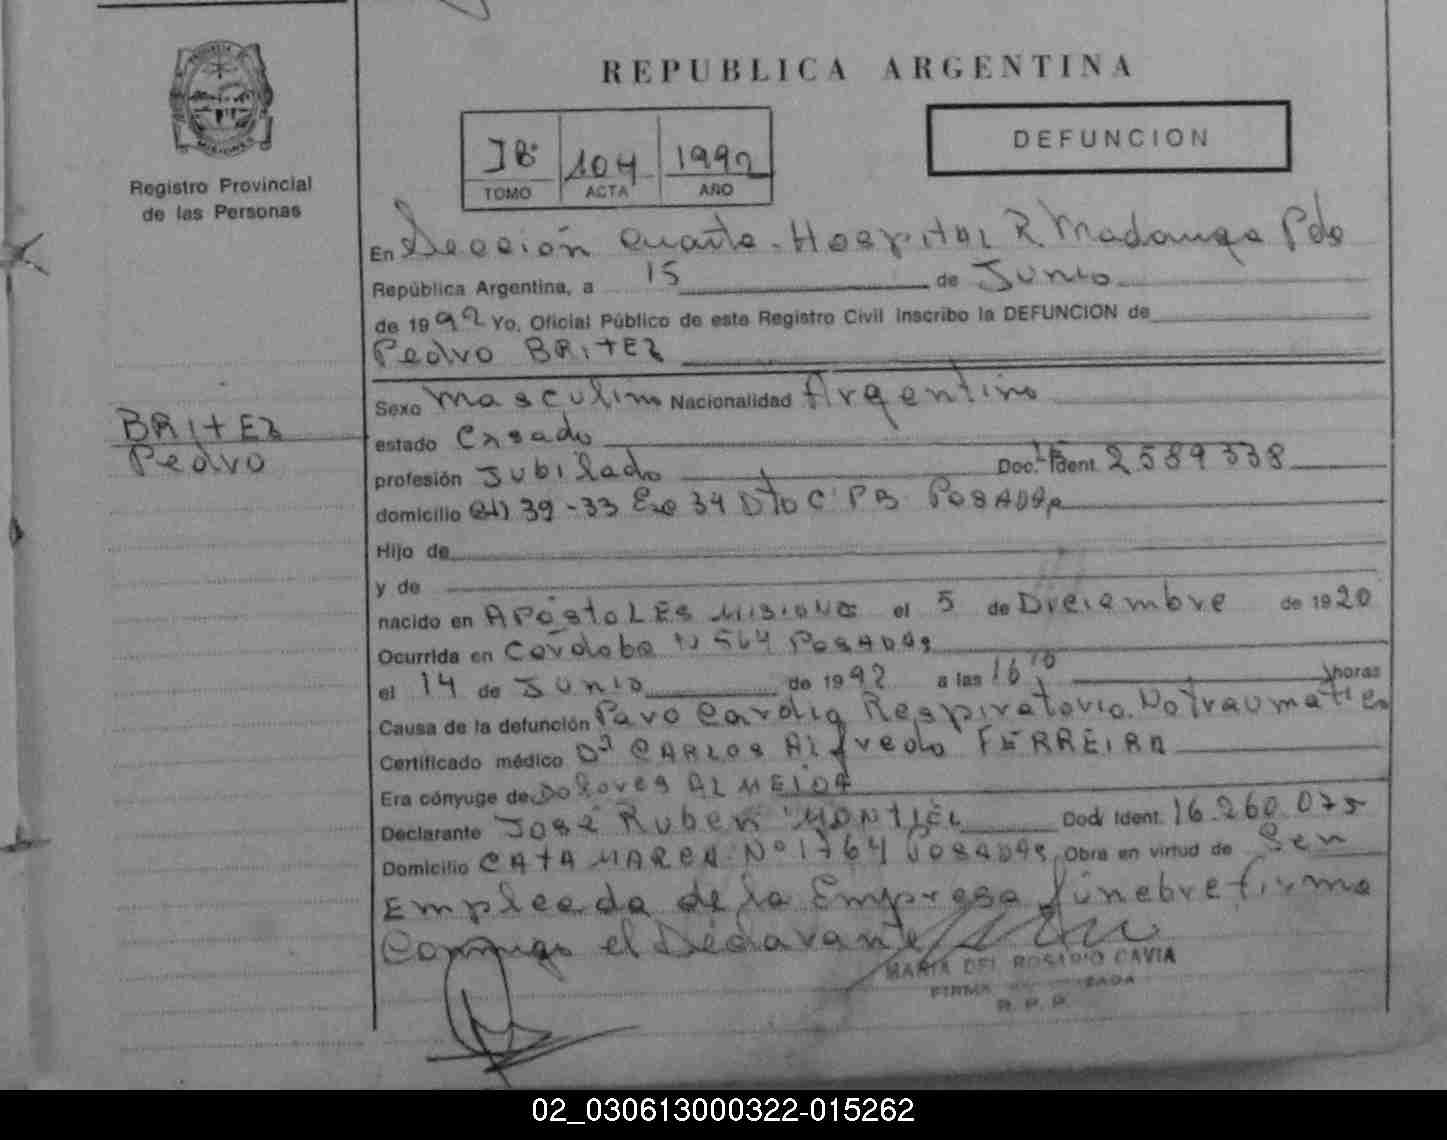 REPUBLICA ARGENTINA
DEFUNCION
Registro Provincial
de las Personas
104 1992
TOMO ACTA AÑO
En Sección Cuarta. Hospital R. Madariaga Pdas
República Argentina, a 15 de Junio
de 1992 Yo, Oficial Público de este Registro Civil inscribo la DEFUNCION de
Pedro BRitEz
BRitEz
Pedro
Sexo Masculino Nacionalidad Argentino
estado Casado
profesión Jubilado Doc. Ident. 2589338
domicilio 39-33 34 Dto C PB POSADAS
Hijo de
y de
nacido en APÓStoLES MISIONES el 5 de Diciembre de 1920
Ocurrida en Córdoba N 564 POSADAS
el 14 de Junio de 1992 a las 16 10 horas
Causa de la defunción Paro Cardio Respiratorio. No traumatico
Certificado médico Dr CARLOS Alfredo FERREIRA
Era cónyuge de Dolores ALMEIDA
Declarante José Ruben MONTIEL Doc. Ident. 16.260.075
Domicilio CATAMARCA Nº 1764 POSADAS Obra en virtud de Ser
Empleado de la Empresa fúnebre firma
Conmigo el Declarante
MARIA DEL ROSARIO CAVIA
FIRMA
R. P. P.
02_030613000322-015262